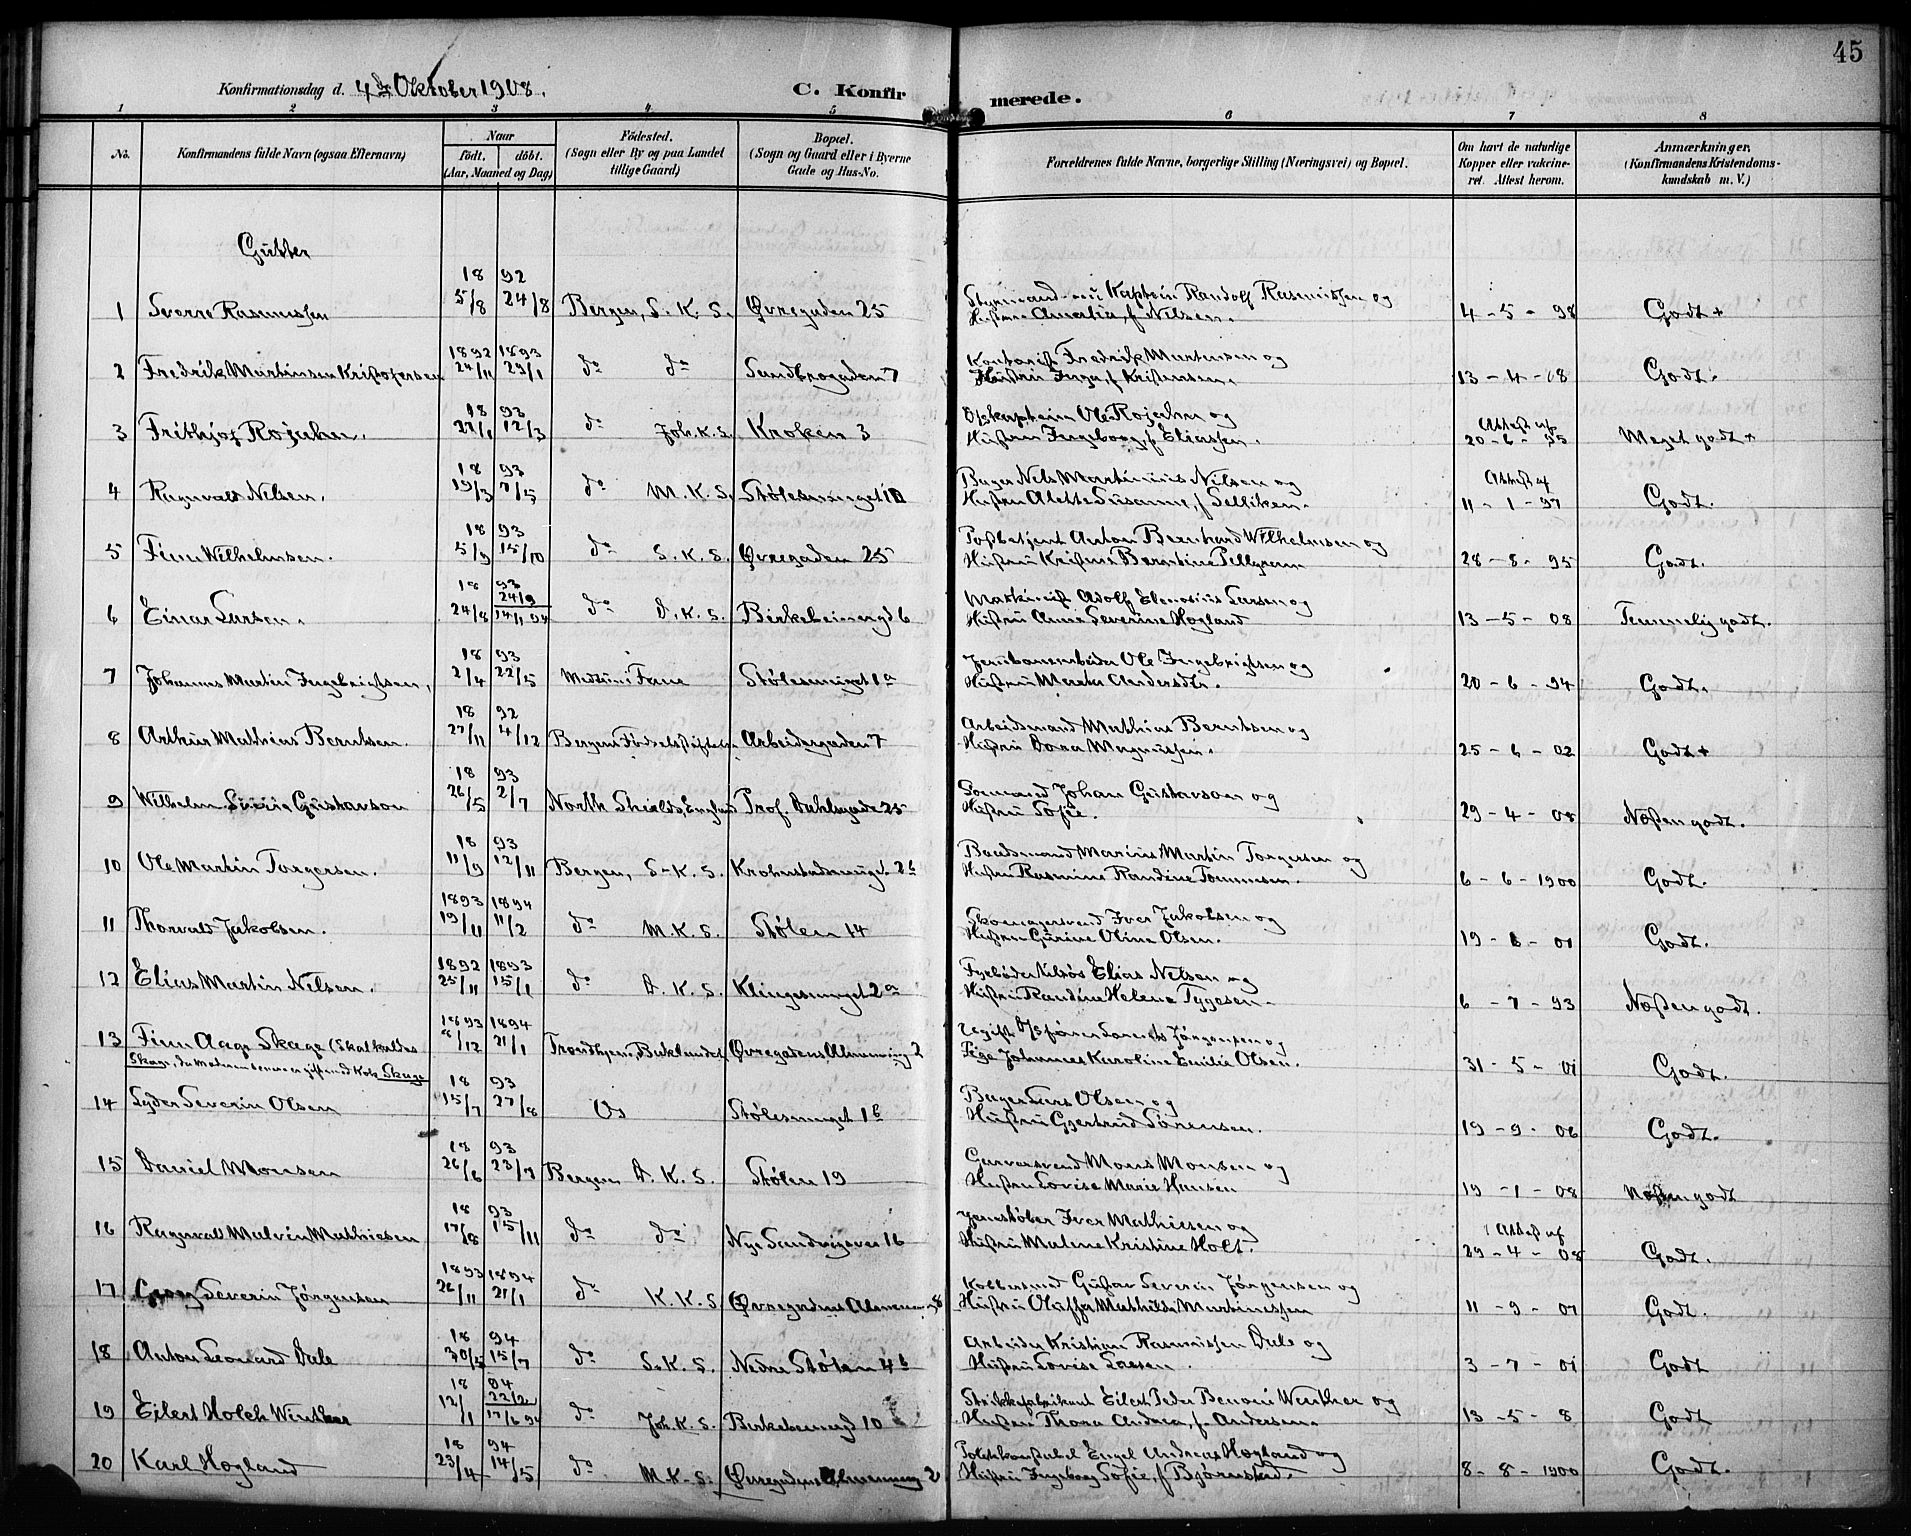 45
Konfirmationsdag d. 4de Oktober 1908.
C. Konfirmerede.
1 2 3 4 5 6 7 8
No.
Konfirmandens fulde Navn (ogsaa Efternavn)
Naar
födt. döbt.
(Aar, Maaned og Dag)
Födested.
(Sogn eller By og paa Landet
tillige Gaard)
Bopæl.
(Sogn og Gaard eller i Byerne
Gade og Hus-No.
Forældrenes fulde Navne, borgerlige Stilling (Næringsvei) og Bopæl.
Om havt de naturlige
Kopper eller vakcine-
ret. Attest herom.
Anmærkninger.
(Konfirmandens Kristendoms-
kundskab m. V.)
Gutter
18 92
1 Sverre Rasmussen 5/8 24/8 Bergen, S. K. S. Øvregaden 25 Kaptein Randolf Rasmussen og
Hustru Amalia, f. Nilsen. 4-5-98 Godt +
1892 1893
2 Fredrik Martinsen Kristofersen 24/11 29/1 do do Sandbrogaden 7 Kontorist Fredrik Martensen og
Hustru Inga, f. Kristensen. 13-4-08 Godt.
18 93
3 Frithjof Rojahn. 12/3 do Joh. K. S. Kroken 3 Ole Rojahn og
Hustru Ingeborg, f. Eliassen. Attest af 20-6-95 Meget godt +
18 93
4 Ragnvald Nelsen. 19/3 7/5 do M. K. S. Stølesmuget Bager Nels Martinius Nilsen og
Hustru Alette Susanne, f. Selliken. Attest af 11-1-97 Godt.
18 93
5 Finn Wilhelmsen. 5/9 15/10 do S. K. S. Øvregaden 25 Postbetjent Anton Bernhard Wilhelmsen og
Hustru Kristine Berntine Pellgren 28-8-95 Godt.
18 93
24/9
6 Einar Larsen. 24/8 14/1 94 do D. K. S. Birkebeinergd 6 Maskinist Adolf Larsen og
Hustru Anna Severine Høgland 13-5-08 Temmelig godt.
18 93
7 Johannes Martin Ingebrigtsen, 2/4 22/5 Fane Stølesmuget 1a Jernbanearbeider Ole Ingebrigtsen og
Hustru Marta Andersdtr. 20-6-94 Godt.
18 92
8 Arthur Mathias Berntsen. 27/11 4/12 Bergens Fødselsstiftelse Arbeidergaden 7 Arbeidsmand Mathias Berntsen og
Hustru Dora Magnussen. 25-6-02 Godt +
18 93
9 Wilhelm Gustavson 26/5 2/7 North Shields, England Prof. Dahlsgade 25 Sømand Johan Gustavson og
Hustru Sofie. 29-4-08 Næsten godt.
18 93
10 Ole Martin Torgersen. 11/9 12/11 Bergen, S-K. S. Krohnstadsmuget 2b Baadsmand Marius Martin Torgersen og
Hustru Rasmine Randine Tommesen. 6-6-1900 Godt.
1893 1894
11 Thorvald Jakobsen. 19/11 11/2 do M. K. S. Stølen 14 Skomagersvend Iver Jakobsen og
Hustru Gurine Oline Olsen. 19-6-01 Godt.
1892 1893
12 Elias Martin Nelsen. 25/11 15/1 do D. K. S. Klingesmuget 2a Fyrbøder Elias Nelsen og
Hustru Randine Helene Tygesen. 6-7-93 Næsten godt.
1893 1894
13 Finn Aage Skage (Skal kaldes 8/12 21/1 Trondhjem, Baklandet Øvregadens Almenning 2 Ugift Jørgensen og
Skage, da Moderen senere er gift med Skage Pige Johannes Karoline Emilie Olsen. 31-5-01 Godt.
18 93
14 Lyder Severin Olsen 15/7 27/8 Os Stølesmuget 1b Bager Lars Olsen og
Hustru Gjertrud Sørensen. 19-9-06 Godt.
18 93
15 Daniel Monsen 26/6 23/7 Bergen D. K. S. Stølen 19 Garversvend Mons Monsen og
Hustru Lovise Marie Hansen 19-1-08 Næsten godt
18 93
16 Ragnvald Malvin Mathiesen 17/8 15/11 do do Nye Sandvigsvei 16 Jernstøber Iver Mathiesen og
Hustru Malene Kristine Holt. Attest af 29-4-08 Godt.
1893 1894
17 Georg Severin Jørgensen 26/11 21/1 do K. K. S. Øvregadens Almenning 8 Gustav Severin Jørgensen og
Hustru Oluffa Mathilde Martinussen 11-9-07 Godt.
18 94
18 Anton Leonard Dale 30/5 15/7 do S. K. S. Nedre Stølen 4b Arbeider Kristian Rasmussen Dale og
Hustru Lovise Larsen. 3-7-01 Godt
18 94
22/2
19 Eilert Holck Winther 12/1 17/6 94 do Joh. K. S. Birkebeinergd 10 Strikkefabrikant Eilert Peder Winther og
Hustru Thora Andrea, f. Andersen. 13-5-8 Godt
18 94
20 Karl Høgland 23/4 14/5 do M. K. S. Øvregadens Almenning 2 Politikonstabel Engel Andreas Høgland og
Hustru Ingeborg Sofie, f. Bjørnstad. 8-8-1900 Godt.